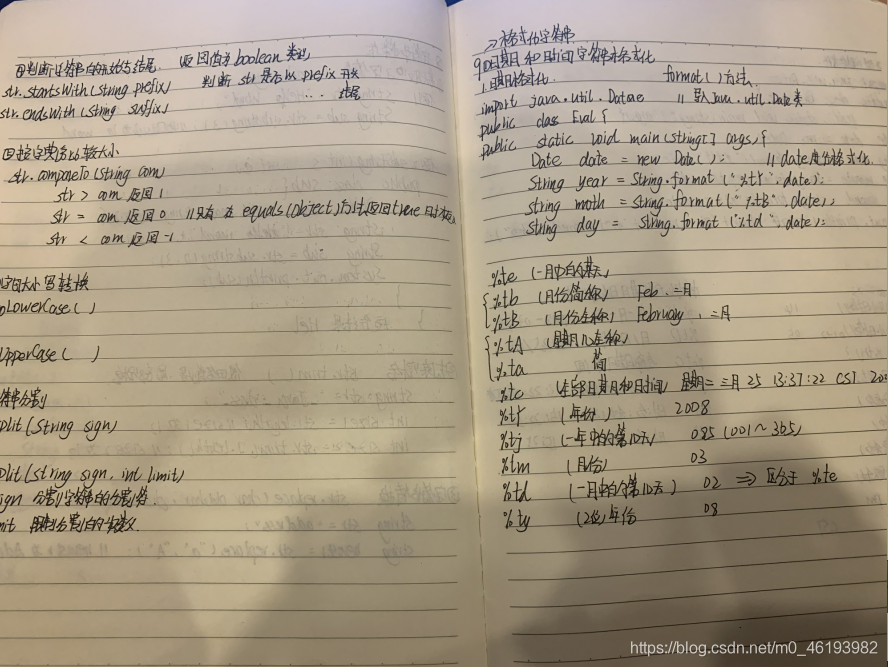 判断字符串的开始与结尾 返回值为boolean类型
str.startsWith(String prefix) 判断str是否以prefix开头
str.endsWith(String suffix) ... 结尾
按字典序比较大小
str.compareTo(String com)
str > com 返回 1
str = com 返回 0 //只有在equals(Object)方法返回true时
str < com 返回 -1
字母大小写转换
oLowerCase( )
UpperCase( )
符串分割
plit(String sign)
plit(String sign, int limit)
ign 分割字符串的分割符
mit 限制分割的次数
>格式化字符串
日期和时间字符串格式化
1.日期格式化 format()方法
import java.util.Datae //导入java.util.Date类
public class Eval {
public static void main(String[] args){
Date date = new Date(); //date
String year = String.format("%tY", date);
String moth = String.format("%tB", date);
String day = String.format("%td", date);
%te (一月中的某天)
%tb (月份简称) Feb, 二月
%tB (月份全称) February, 二月
%tA (星期几全称)
%ta 简
%tc (全部日期和时间) 星期二 三月 25 13:37:22 CST 200
%tY (年份) 2008
%tj (一年中的第几天) 085 (001~365)
%tm (月份) 03
%td (一月中的第几天) 02 => 区分于 %te
%ty (2位)年份 08
https://blog.csdn.net/m0_46193982